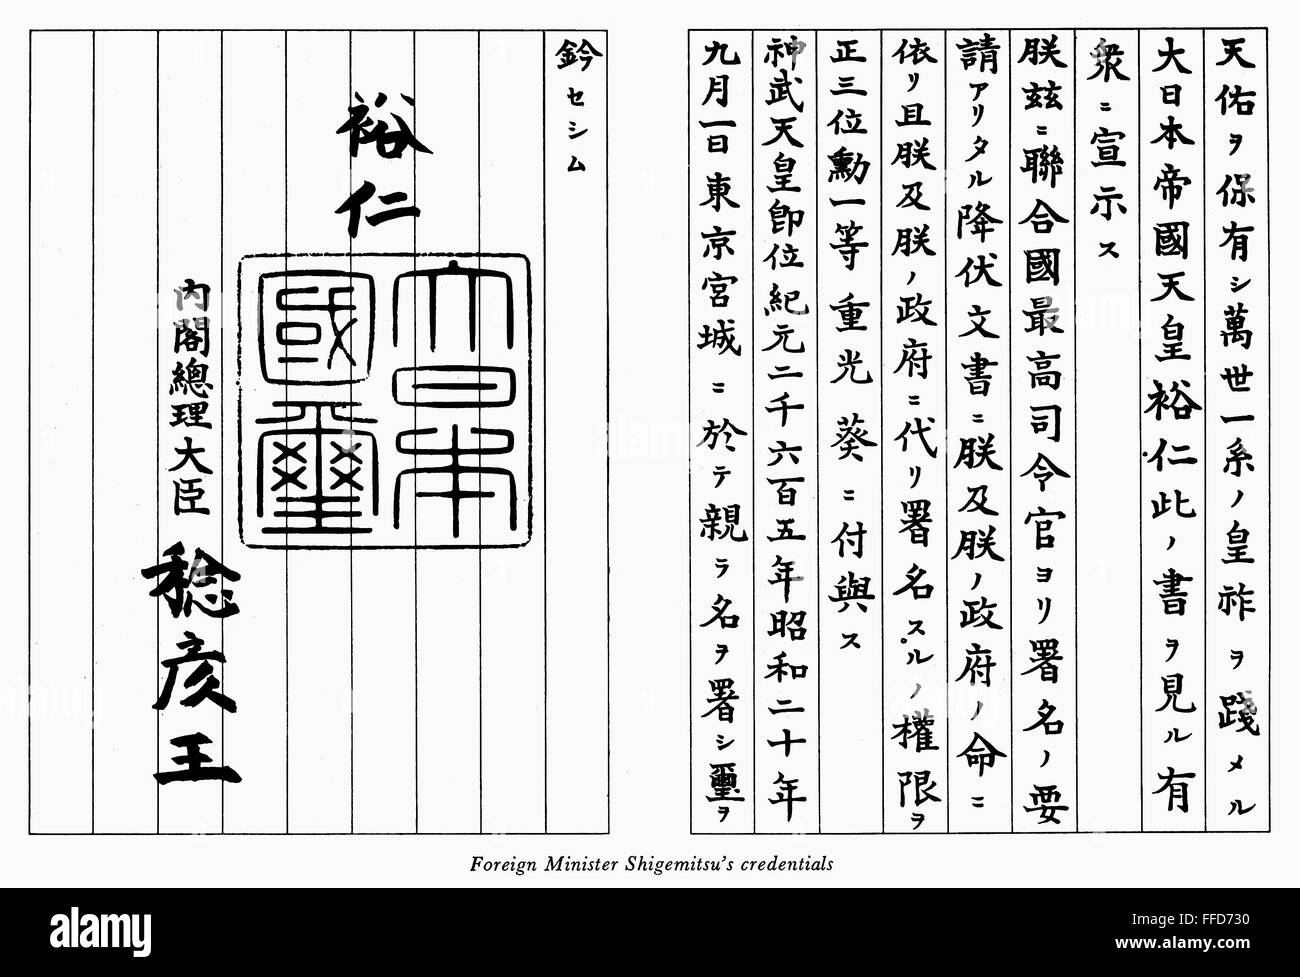 天佑ヲ保有シ萬世一系ノ皇祚ヲ踐メル
大日本帝國天皇裕仁此ノ書ヲ見ル有
衆ニ宣示ス
朕玆ニ聯合國最高司令官ヨリ署名ノ要
請アリタル降伏文書ニ朕及朕ノ政府ノ命ニ
依リ且朕及朕ノ政府ニ代リ署名スルノ權限ヲ
正三位勳一等重光葵ニ付與ス
神武天皇卽位紀元二千六百五年昭和二十年
九月一日東京宮城ニ於テ親ラ名ヲ署シ璽ヲ
鈐セシム
裕仁
大日本
國璽
內閣總理大臣 稔彥王
Foreign Minister Shigemitsu's credentials
alamy
Image ID: FFD730
www.alamy.com